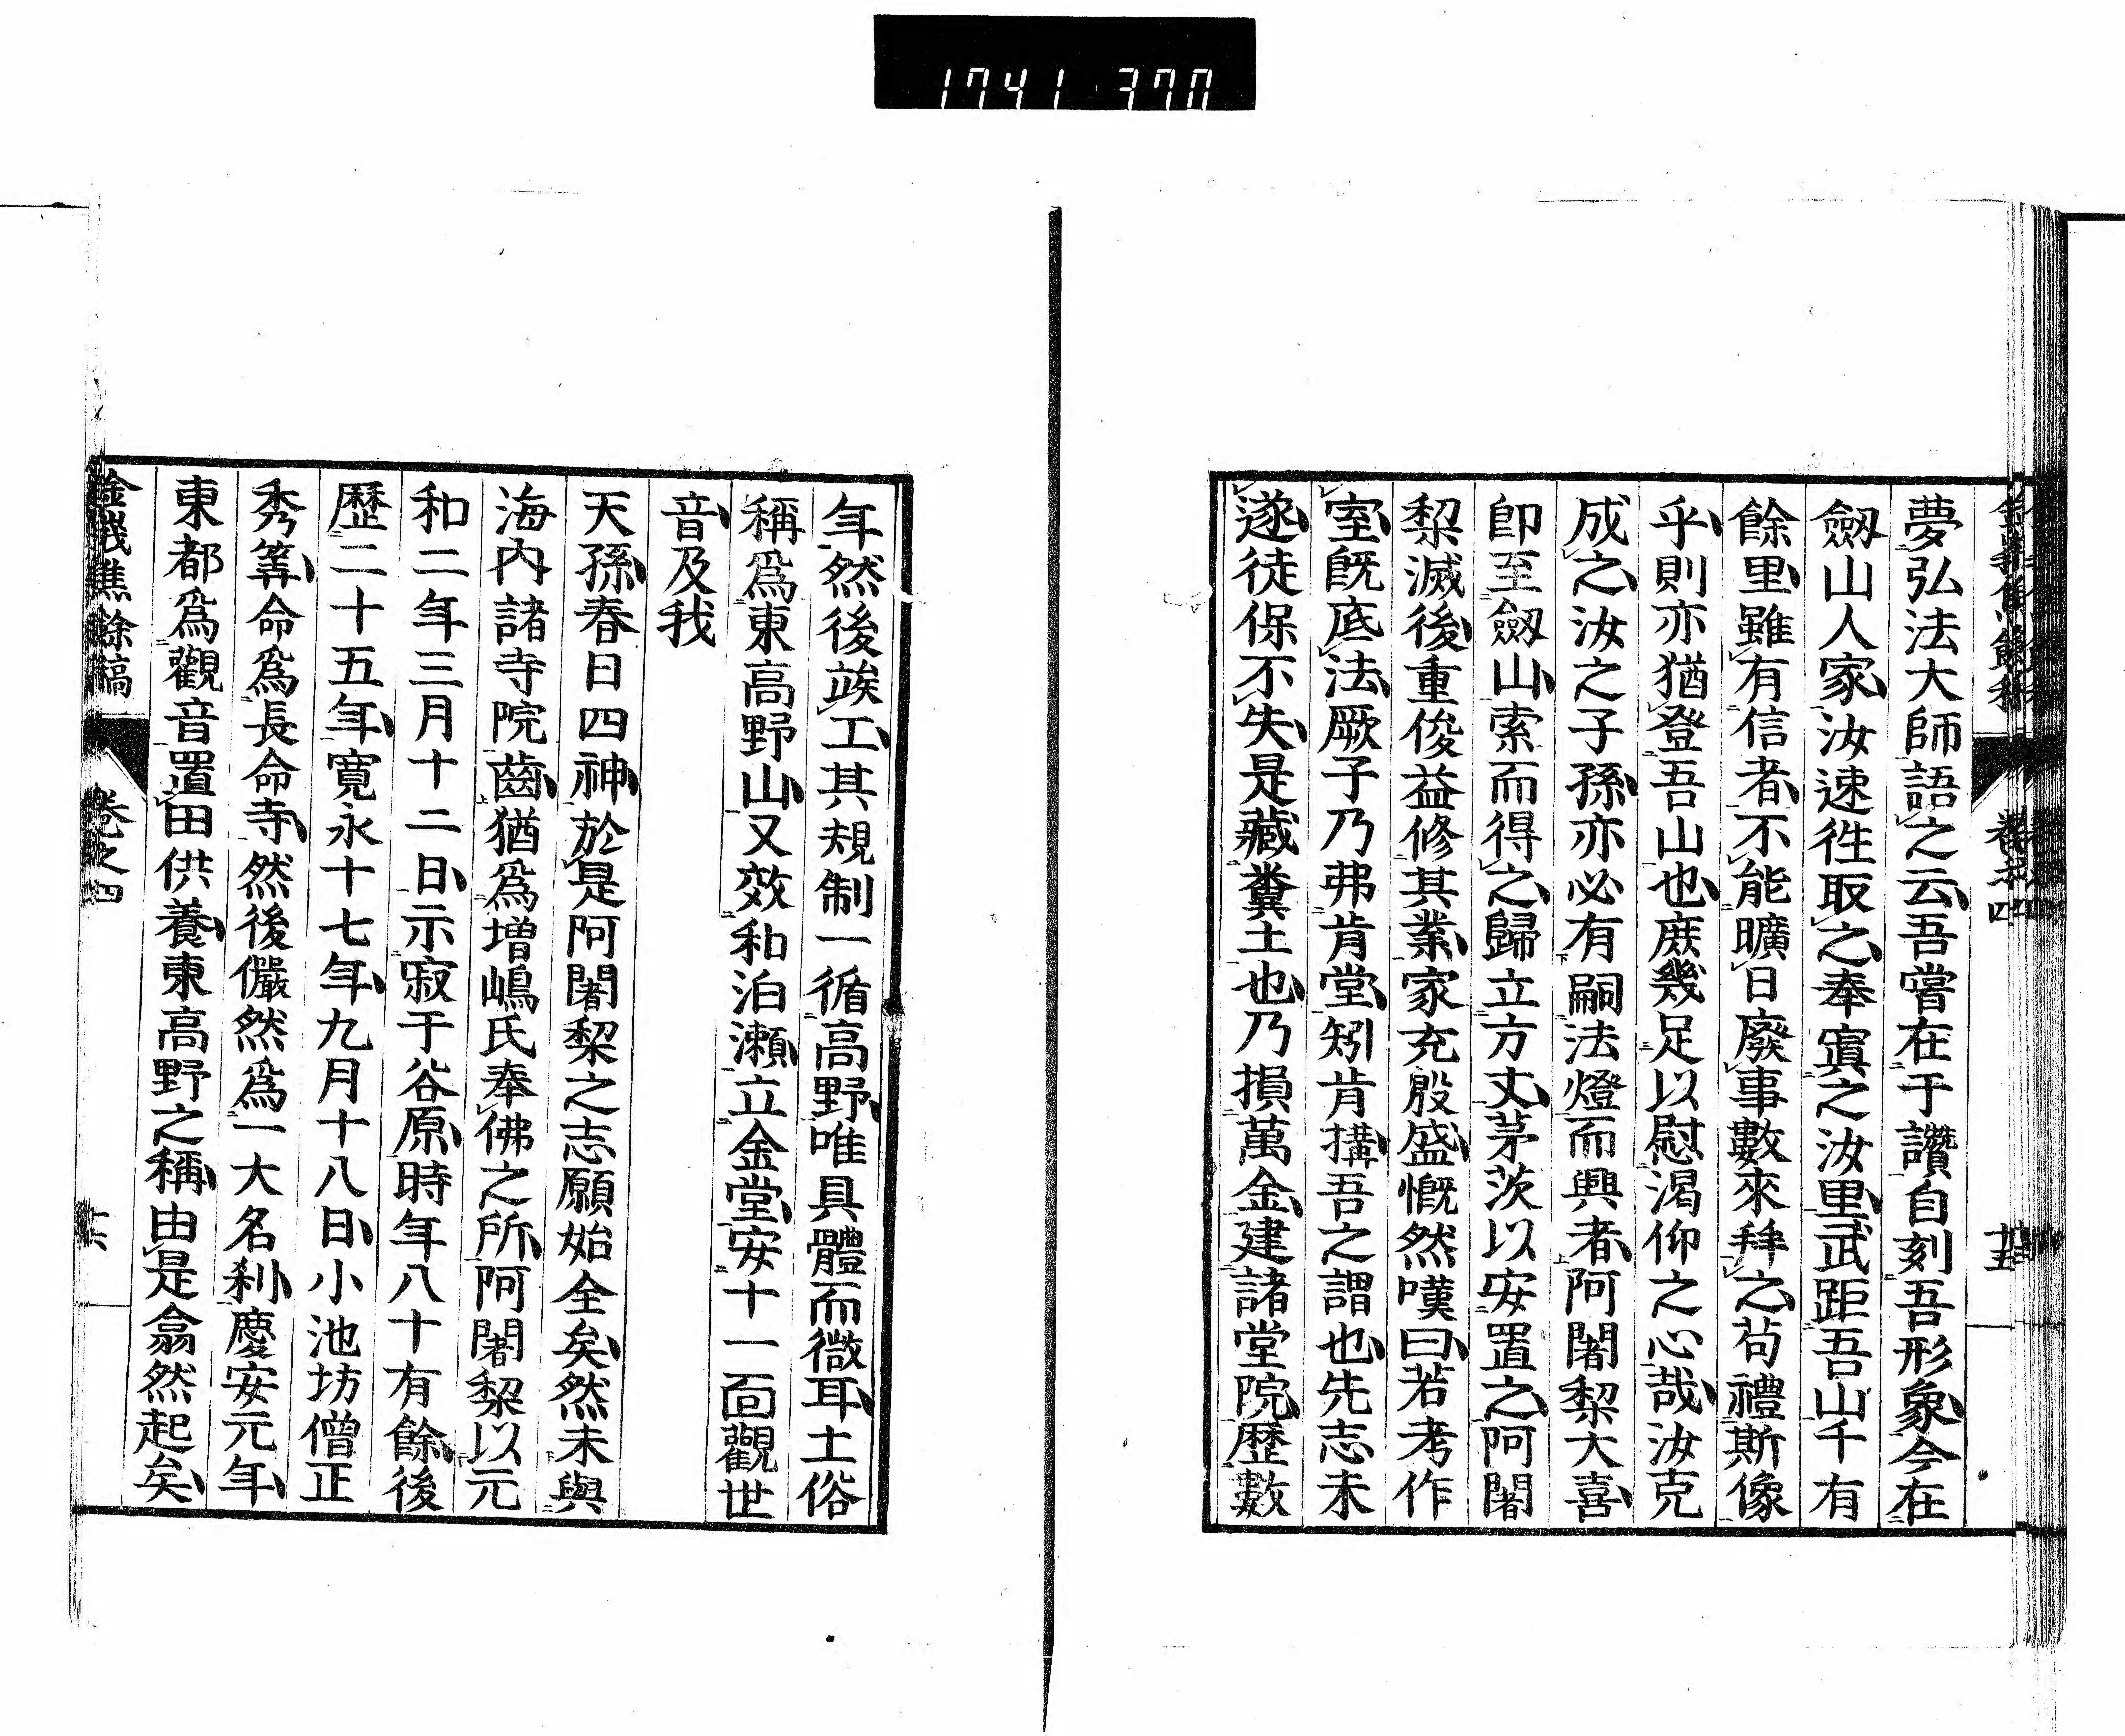 1741 370
夢弘法大師語之云吾嘗在于讚自刻吾形象今在
劔山人家汝速徃取之奉寘之汝里武距吾山千有
餘里雖有信者不能曠日廢事數來拜之茍禮斯像
乎則亦猶登吾山也庶幾足以慰渴仰之心哉汝克
成之汝之子孫亦必有嗣法燈而興者阿闍梨大喜
卽至劔山索而得之歸立方丈茅茨以安置之阿闍
梨滅後重俊益修其業家充殷盛慨然嘆曰若考作
室旣底法厥子乃弗肯堂矧肯搆吾之謂也先志未
遂徒保不失是藏糞土也乃損萬金建諸堂院歷數
年然後竢工其規制一循高野唯具體而微耳土俗
稱爲東高野山又效和泊瀨立金堂安十一面觀世
音及我
天孫春日四神於是阿闍梨之志願始全矣然未與
海內諸寺院齒猶爲增嶋氏奉佛之所阿闍梨以元
和二年三月十二日示寂于谷原時年八十有餘後
歷二十五年寬永十七年九月十八日小池坊僧正
秀筭命爲長命寺然後儼然爲一大名刹慶安元年
東都爲觀音置田供養東高野之稱由是翕然起矣
餘稿 卷之四 十六